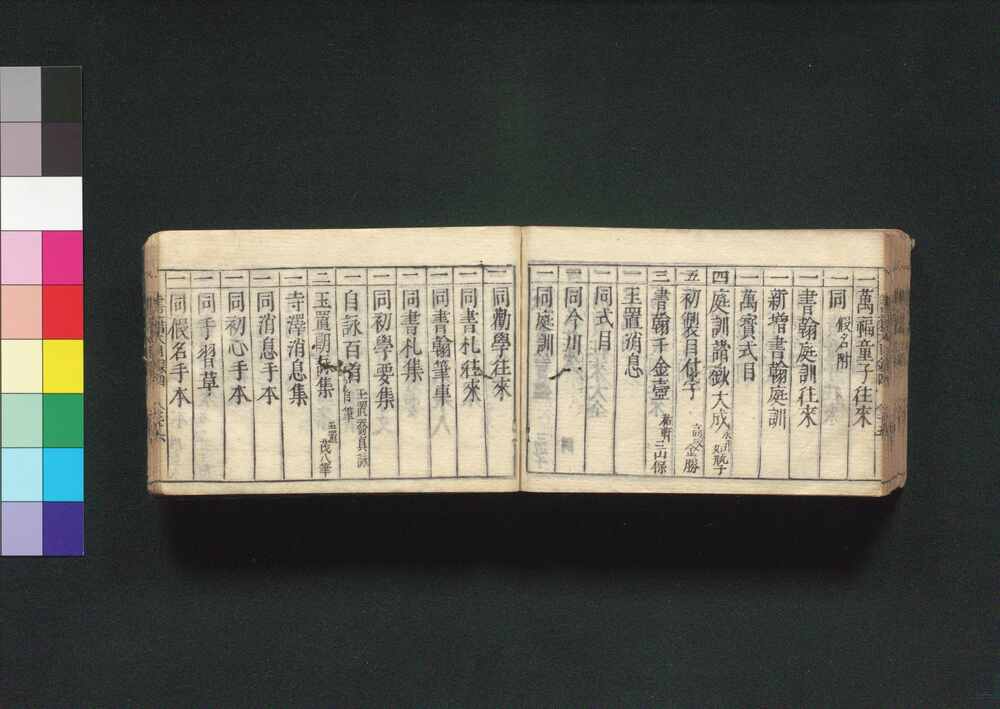 一 萬福童子往來
一 同 假名附
一 書翰庭訓往來
一 新增書翰庭訓
一 萬寶式目
四 庭訓諸鈔大成
五 初儓目付字 金勝
三 書翰千金壺
一 玉置消息
一 同式目
一 同今川
一 同庭訓
一 同勸學往來
一 同書札往來
一 同書翰筆車
一 同書札集
一 同初學要集
一 自詠百首 自筆
二 玉置朝詠集
一 寺澤消息集
一 同消息手本
一 同初心手本
一 同手習草
一 同假名手本